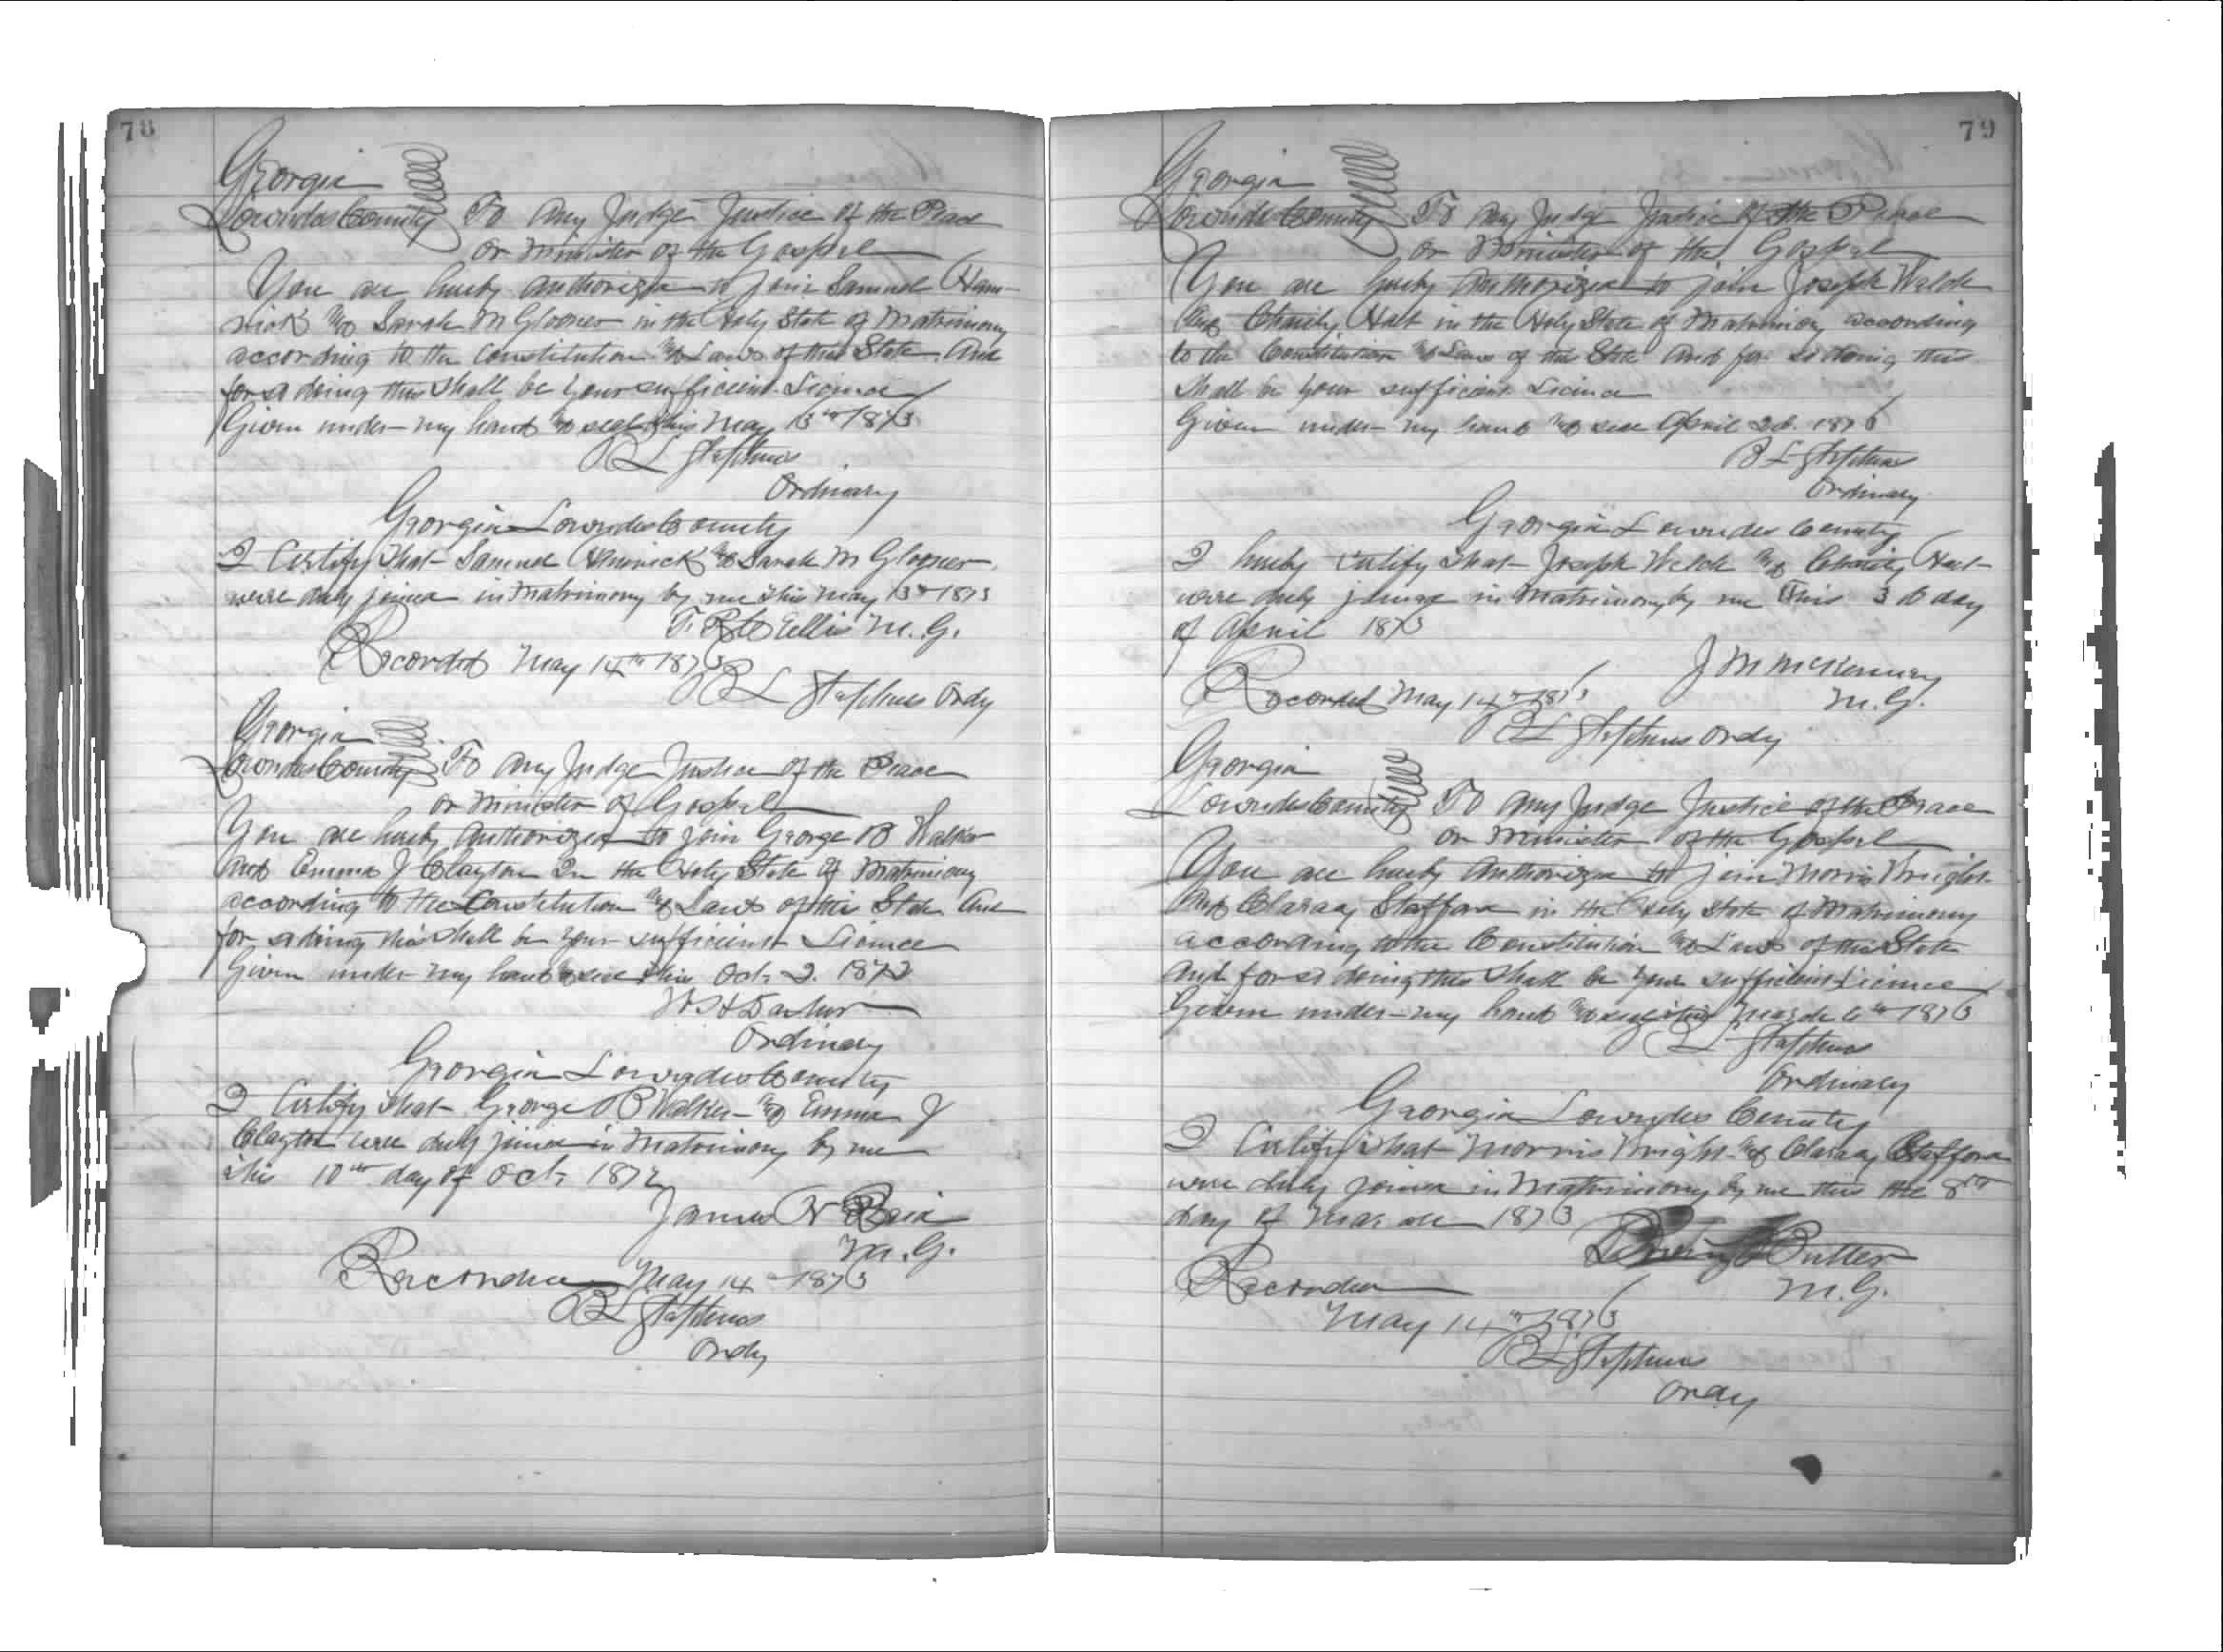 78
Georgia
Lowndes County To Any Judge Justice of the Peace
or Minister of the Gospel
You are hereby authorized to join Samuel Ham-
rick and Sarah M Glooner in the Holy State of Matrimony
according to the Constitution and Laws of this State And
for so doing this shall be your sufficient Licince
Given under my hand and seal this May 13th 1873
R L Stephens
Ordinary
Georgia Lowndes County
I Certify that Samuel Hamrick and Sarah M Glooner
were duly joined in Matrimony by me this May 13th 1873
Ellis M. G.
Recorded May 14th 1873
R L Stephens Ordy
Georgia
Lowndes County To Any Judge Justice of the Peace
or Minister of Gospel
You are hereby authorized to join George B Walker
And Emma J Clayton In the Holy State of Matrimony
according to the Constitution and Laws of this State And
for so doing this shall be your sufficient Licince
Given under my hand and seal this Oct. 2. 1872
Ordinary
Georgia Lowndes County
I Certify that George B Walker and Emma J
Clayton were duly joined in Matrimony by me
this 10th day of Oct. 1872
James
M. G.
Recorded May 14th 1873
R L Stephens
Ordy
79
Georgia
Lowndes County To Any Judge Justice of the Peace
or Minister of the Gospel
You are hereby Authorized to join Joseph Welch
And Charity Hart in the Holy State of Matrimony according
to the Constitution and Laws of this State And for so doing this
shall be your sufficient Licince
Given under my hand and seal April 28. 1873
R L Stephens
Ordinary
Georgia Lowndes County
I hereby certify that Joseph Welch and Charity Hart
were duly joined in Matrimony by me This 30 day
of April 1873
J M McKenney
M. G.
Recorded May 14th 1873
R L Stephens Ordy
Georgia
Lowndes County To Any Judge Justice of the Peace
or Minister of the Gospel
You are hereby Authorized to join Morris Knight
And Claray Stafford in the Holy State of Matrimony
according to the Constitution and Laws of this State
And for so doing this shall be your sufficient Licince
Given under my hand and seal this March 6th 1873
R L Stephens
Ordinary
Georgia Lowndes County
I Certify that Morris Knight and Claray Stafford
were duly joined in Matrimony by me this the 8th
day of March 1873
Butler
Recorded M. G.
May 14th 1873
R L Stephens
Ordy